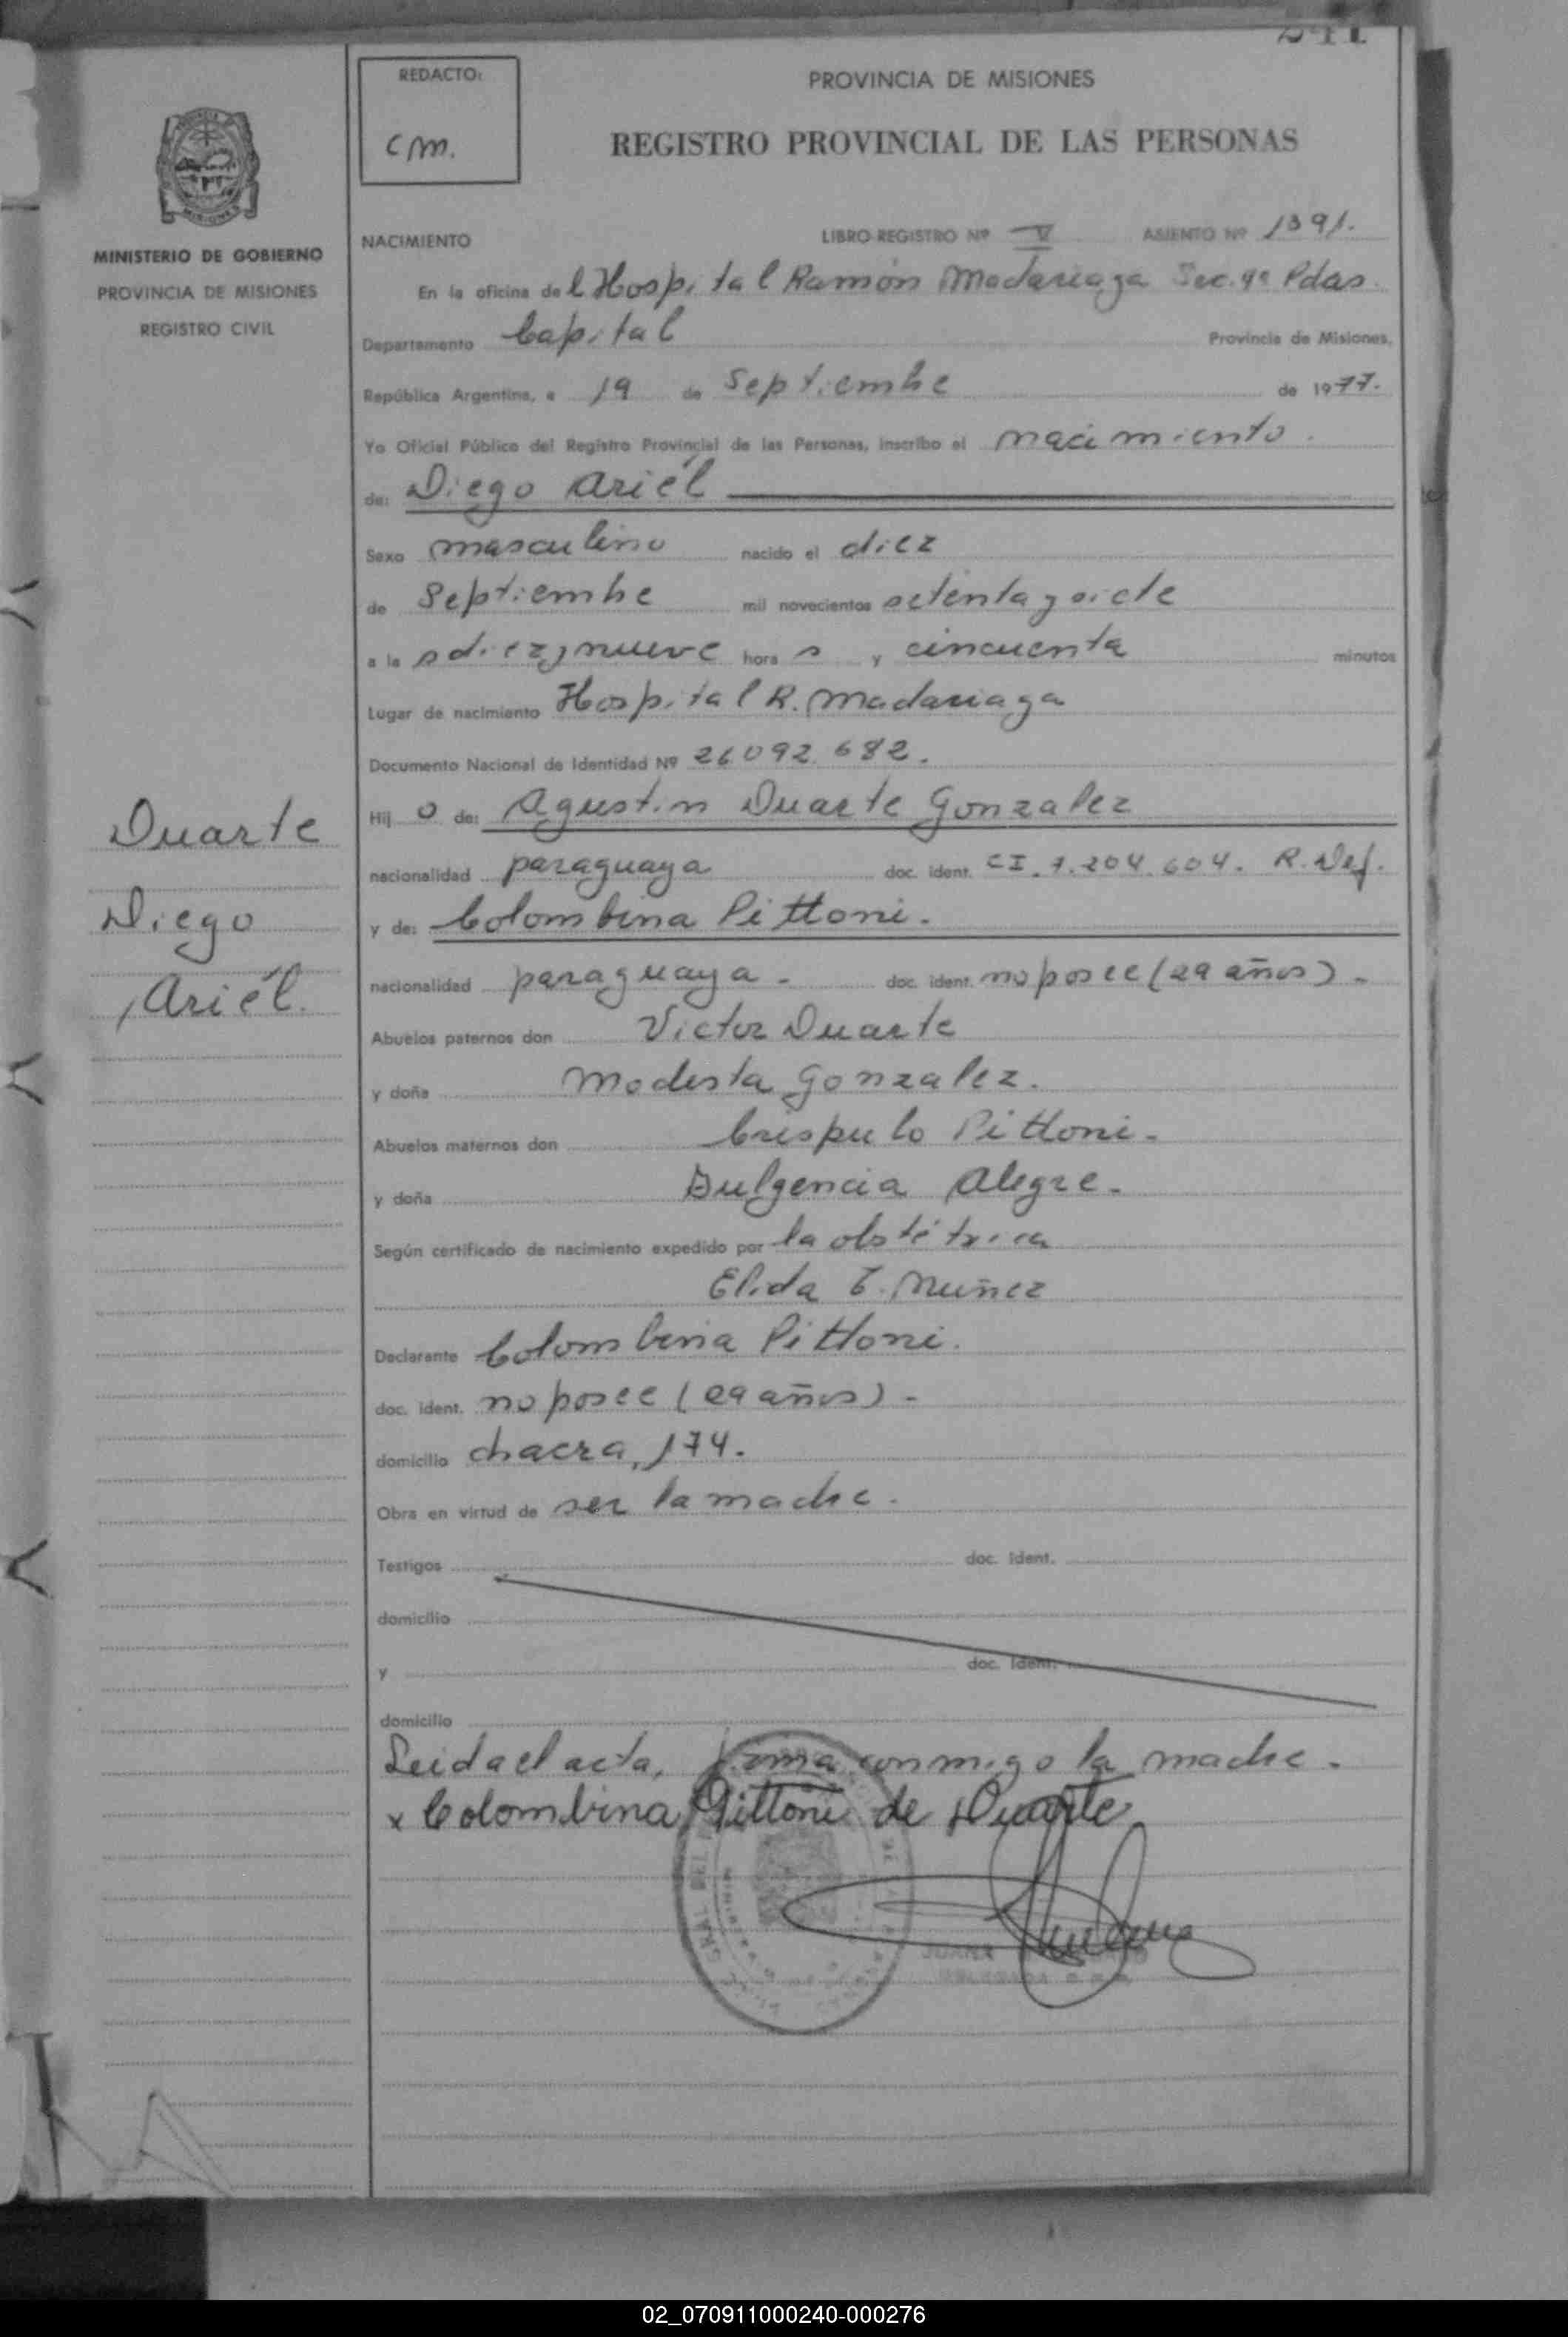 REDACTO:
cm.
PROVINCIA DE MISIONES
REGISTRO PROVINCIAL DE LAS PERSONAS
MISIONES
MINISTERIO DE GOBIERNO
PROVINCIA DE MISIONES
REGISTRO CIVIL
NACIMIENTO LIBRO-REGISTRO Nº V ASIENTO Nº 1391.
En la oficina del Hospital Ramón Madariaga Sec. 4ª Pdas.
Departamento Capital Provincia de Misiones,
República Argentina, a 19 de Septiembre de 1977.
Yo Oficial Público del Registro Provincial de las Personas, inscribo el nacimiento.
de: Diego Ariél
Sexo masculino nacido el diez
de Septiembre mil novecientos setenta y siete
a las diez y nueve horas y cincuenta minutos
Lugar de nacimiento Hospital R. Madariaga
Documento Nacional de Identidad Nº 26.092.682.
Hijo de: Agustin Duarte Gonzalez
nacionalidad paraguaya doc. ident. CI. 7.204.604. R. Def.
y de: Colombina Pittoni.
nacionalidad paraguaya - doc. ident. no posee (29 años) -
Abuelos paternos don Victor Duarte
y doña Modesta Gonzalez.
Abuelos maternos don Crispulo Pittoni -
y doña Dulgencia Alegre -
Según certificado de nacimiento expedido por la obstétrica
Elida E. Muñez
Declarante Colombina Pittoni.
doc. ident. no posee (29 años) -
domicilio chacra, 174.
Obra en virtud de ser la madre -
Testigos doc. ident.
domicilio
y doc. ident.
domicilio
Leida el acta, firma conmigo la madre -
x Colombina Pittoni de Duarte
Duarte
Diego
Ariél.
JUANA
DELEGADA
02_070911000240-000276